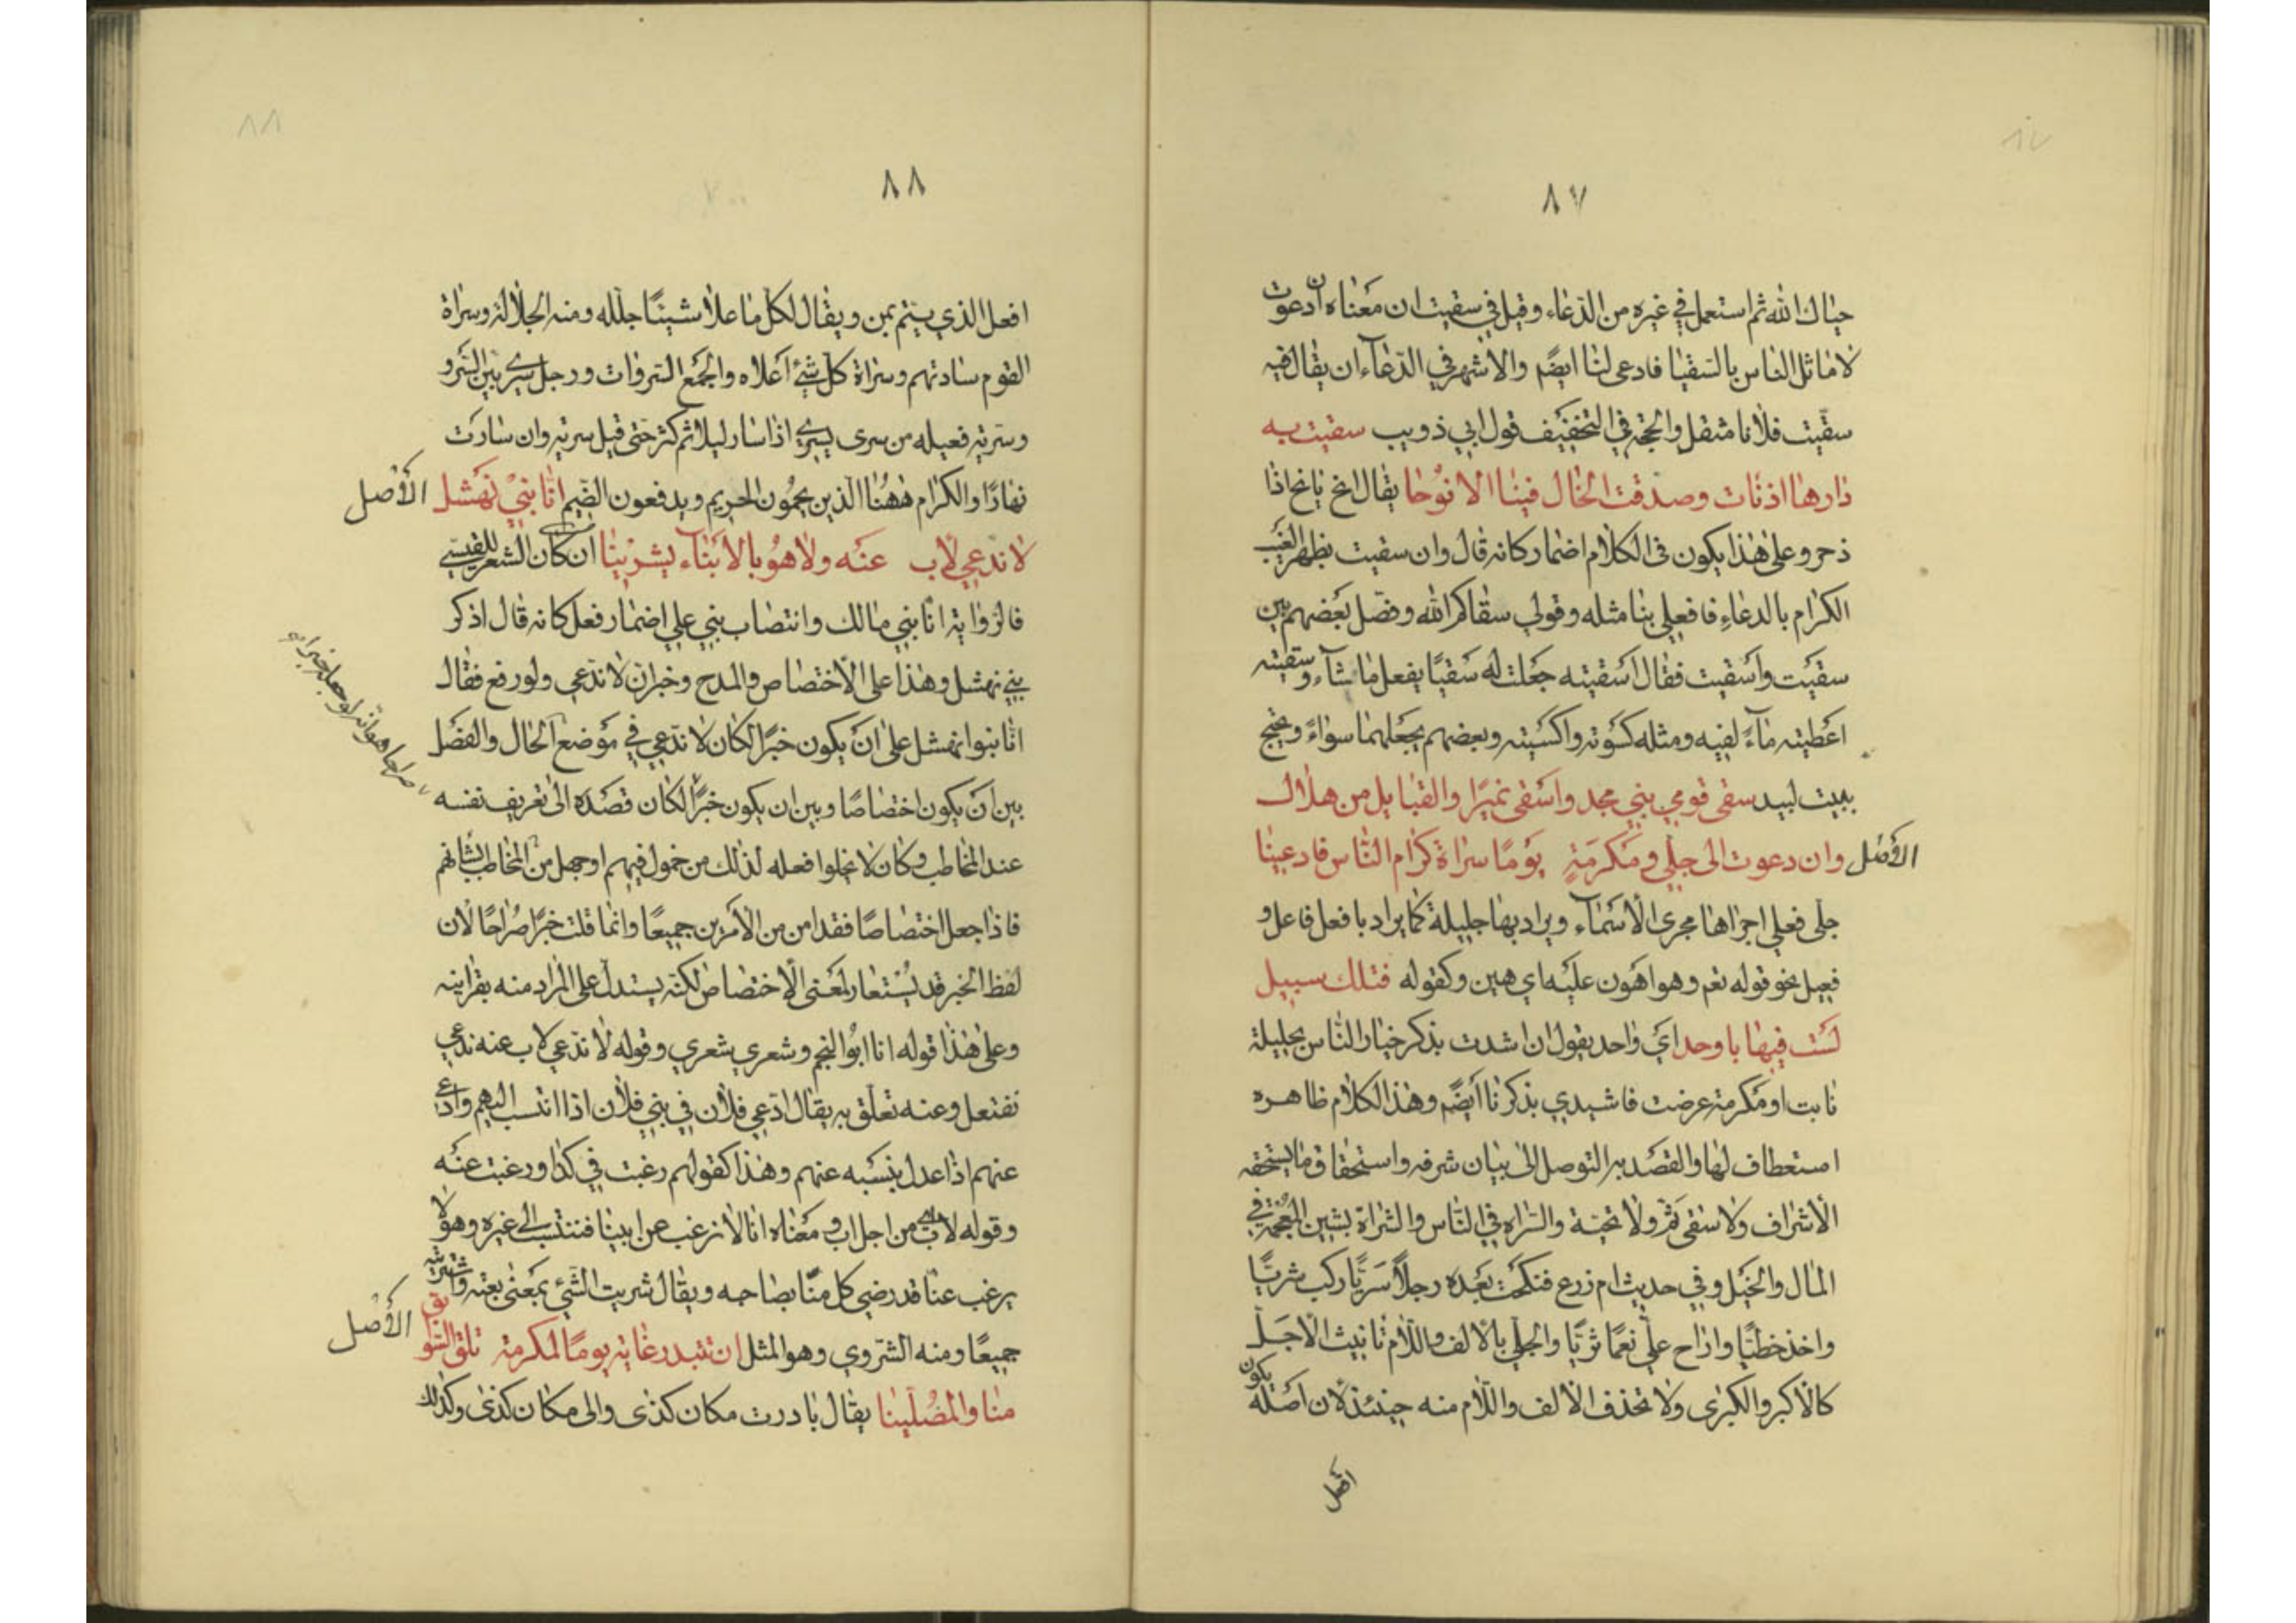 ٨٧
حياك الله ثم استعمل في غيره من الدعاء وقيل في سقيت ان معناه ان دعوت
لاماثل الناس بالسقيا فادعى لنا ايضًا والاشهر في الدعاء ان يقال فيه
سقّيت فلانا مثقل والحجة في التخفيف قول ابي ذويب سقيت به
دارها اذ نات وصدقت الخال فينا الانوحا يقال انح يانح اذا
ذحر وعلى هذا يكون في الكلام اضمار كانه قال وان سقيت بظهر الغيب
الكرام بالدعاء فافعلي بنا مثله وقولي سقاكم الله وفصل بعضهم بين
سقيت واسقيت فقال اسقيته جعلت له سقيًا يفعل ما شاء وسقيته
اعطيته ماءً لفيه ومثله كسوته واكسيته وبعضهم يجعلهما سواءً ويحتج
ببيت لبيد سقى قومي بني مجد واسقى نميرًا والقبايل من هلال
الأصل وان دعوت الى جلّى ومكرمةٍ يومًا سراة كرام الناس فادعينا
جلّى فعلي اجراها مجرى الاسماء ويراد بها جليلة كما يراد بافعل فاعل و
فعيل نحو قوله تعم وهو اهون عليه اي هين وكقوله فتلك سبيل
لست فيها باوحد اي واحد يقول ان اشدت بذكر خيار الناس بجليلة
نابت او مكرمة عرضت فاشيدي بذكرنا ايضًا وهذا الكلام ظاهره
استعطاف لها والقصد به التوصل الى بيان شرفه واستحقاق ما يستحقه
الاشراف ولا سقى ثمّ ولا تحيّة والسراه في الناس والشراة بشين المعجمة في
المال والخيل وفي حديث ام زرع فنكحت بعده رجلًا سريًّا ركب شريًّا
واخذ خطيًّا واراح عليّ نعمًا ثريًّا والجلّى بالالف واللام تانيث الاجلّ
كالاكبر والكبرى ولا تحذف الالف واللام منه حينئذ لان اصله يكون
افعل
٨٨
افعل الذي يتم بمن ويقال لكل ما علا شيئًا جلله ومنه الجلالة وسراة
القوم سادتهم وسراة كل شئ اعلاه والجمع السروات ورجل سري بين السرو
وسرية فعيله من سرى يسري اذا سار ليلا ثم كثر حتى قيل سرية وان سارت
نهارًا والكرام ههنا الذين يحمون الحريم ويدفعون الضيم انا بني نهشل الأصل
لا ندعي لاب عنه ولا هو بالابناء يشرينا ان كان الشعر للقيسي
فالرواية انا بني مالك وانتصاب بني على اضمار فعل كانه قال اذكر
بني نهشل وهذا على الاختصاص والمدح وخبر ان لا ندعي ولو رفع فقال
انا بنوا نهشل على ان يكون خبرًا لكان لا ندعي في موضع الحال والفصل
بين ان يكون اختصاصًا وبين ان يكون خبرًا لكان قصده الى تعريف نفسه
عند المخاطب وكان لا يخلوا فعله لذلك من خمول فيهم او جهل من المخاطب بشانهم
فاذا جعل اختصاصًا فقد امن من الامرين جميعًا وانما قلت خبرًا صراحًا لان
لفظ الخبر قد يستعار لمعنى الاختصاص لكنه يستدل على المراد منه بقراينه
وعلى هذا قوله انا ابو النجم وشعري شعري وقوله لا ندعي لاب عنه ندعي
نفتعل وعنه تعلّق به يقال ادّعى فلان في بني فلان اذا انتسب اليهم وادعى
عنهم اذا عدل بنسبه عنهم وهذا كقولهم رغبت في كذا ورغبت عنه
وقوله لاب من اجل اب ومعناه انا لا نرغب عن ابينا فننتسب الى غيره وهو لا
يرغب عنا قد رضي كل منّا بصاحبه ويقال شريت الشئ بمعنى بعته واشتريته
جميعًا ومنه الشروي وهو المثل ان تبتدر غاية يومًا لمكرمة تلق السوابق الأصل
منا والمصلّينا يقال بادرت مكان كذى والى مكان كذى وكذلك